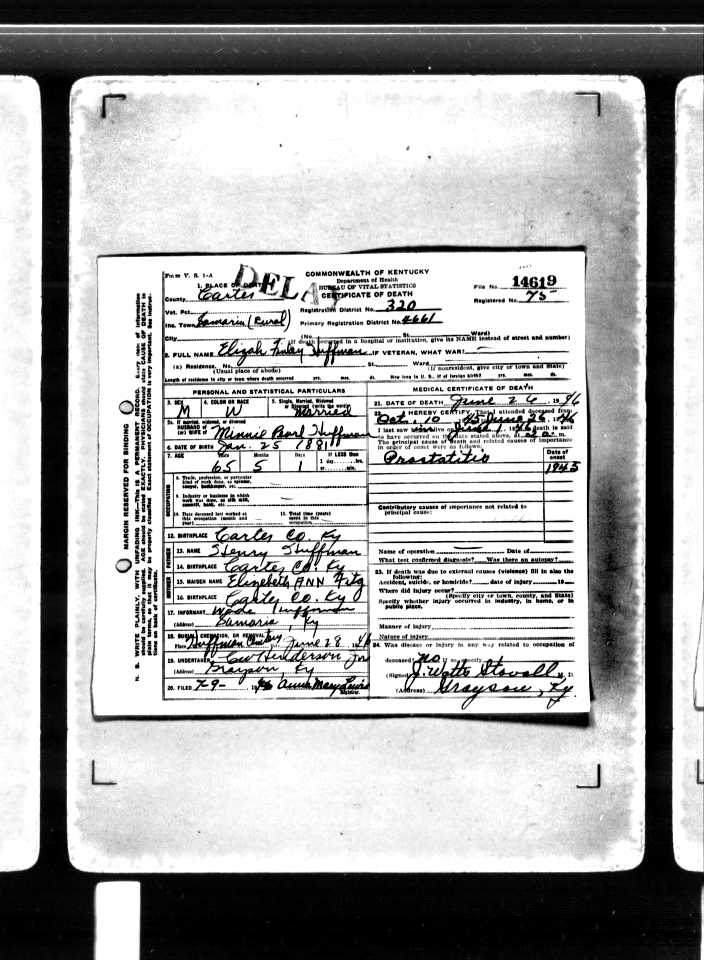 Form V. S. 1-A
COMMONWEALTH OF KENTUCKY
Department of Health
BUREAU OF VITAL STATISTICS
CERTIFICATE OF DEATH
File No. 14619
Registered No. 75
1. PLACE OF DEATH
County Carter
Vot. Pct.
Registration District No. 320
Inc. Town (Rural)
Primary Registration District No. 4661
City (No. St. Ward)
(If death occurred in a hospital or institution, give its NAME instead of street and number)
2. FULL NAME Elizah Finlay Huffman IF VETERAN, WHAT WAR?
(a) Residence. No. St. Ward
(Usual place of abode) (If nonresident, give city or town and State)
Length of residence in city or town where death occurred yrs. mos. ds. How long in U. S., if of foreign birth? yrs. mos. ds.
PERSONAL AND STATISTICAL PARTICULARS
3. SEX M
4. COLOR OR RACE W
5. Single, Married, Widowed or Divorced (write the word) Married
5a. If married, widowed, or divorced
HUSBAND of
(or) WIFE of Minnie Pearl Huffman
6. DATE OF BIRTH Jan. 25 1881
7. AGE Years Months Days If LESS than
65 5 1 1 day......hrs.
or......min.
OCCUPATION
8. Trade, profession, or particular kind of work done, as spinner, sawyer, bookkeeper, etc.
9. Industry or business in which work was done, as silk mill, sawmill, bank, etc.
10. Date deceased last worked at this occupation (month and year)
11. Total time (years) spent in this occupation
12. BIRTHPLACE Carter Co. Ky
FATHER
13. NAME Henry Huffman
14. BIRTHPLACE Carter Co. Ky
MOTHER
15. MAIDEN NAME Elizabeth ANN Fitz
16. BIRTHPLACE Carter Co. Ky
17. INFORMANT Wade Huffman
(Address) Samaria, Ky
18. BURIAL, CREMATION, OR REMOVAL
Place Huffman Cemetery June 28 1946
19. UNDERTAKER Henderson
(Address) Grayson, Ky
20. FILED 7-9- 1946 Mary Lewis
Registrar.
MEDICAL CERTIFICATE OF DEATH
21. DATE OF DEATH June 26, 1946
22. I HEREBY CERTIFY, That I attended deceased from
Oct. 10 45 June 26, 1946
I last saw alive on death is said
to have occurred on the date stated above, at m.
The principal cause of death and related causes of importance
in order of onset were as follows:
Date of onset
Prostatitis 1945
Contributory causes of importance not related to
principal cause:
Name of operation Date of
What test confirmed diagnosis? Was there an autopsy?
23. If death was due to external causes (violence) fill in also the
following:
Accident, suicide, or homicide? date of injury 19
Where did injury occur?
(Specify city or town, county, and State)
Specify whether injury occurred in industry, in home, or in
public place.
Manner of injury
Nature of injury
24. Was disease or injury in any way related to occupation of
deceased? no If so, specify
(Signed) J. Watts Stovall M. D.
(Address) Grayson, Ky
MARGIN RESERVED FOR BINDING